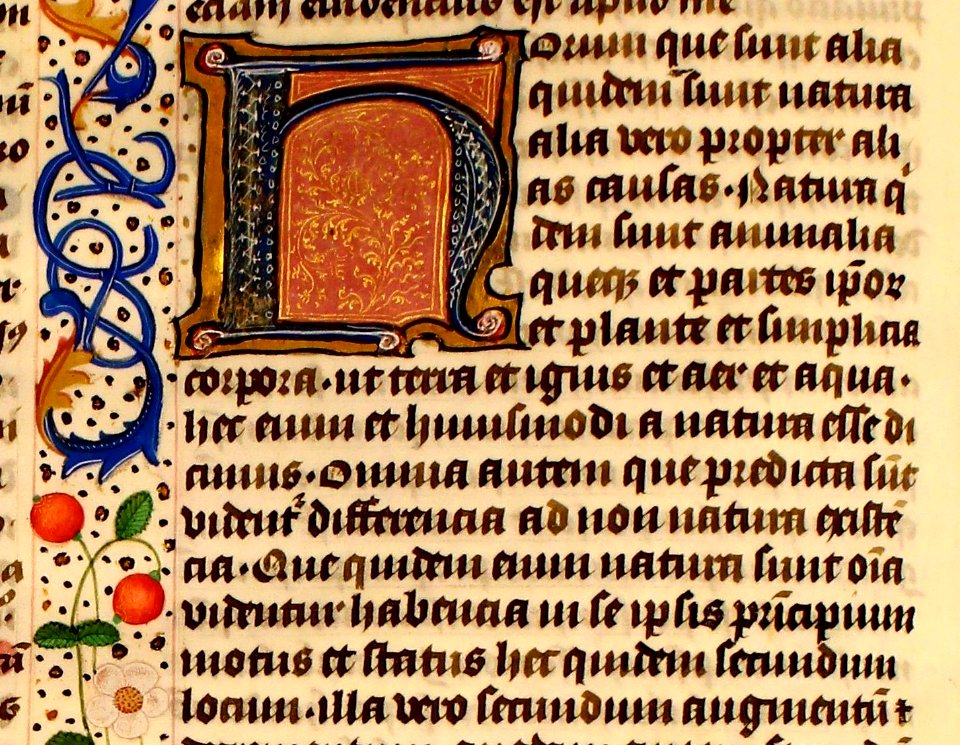 Horum que sunt alia
quidem sunt natura
alia vero propter ali
as causas. Natura qͥ
dem sunt animalia
queqꝫ et partes ip̄oꝝ
et plante et simplicia
corpora. ut terra et ignis et aer et aqua.
hec enim et huiusmodi a natura esse di
cimus. Omnia autem que predicta su͞t
videnťˢ differencia ad non natura existē
cia. Que quidem enim natura sunt oīa
videntur habencia in se ipsis prīcipium
motus et status hec quidem secundum
locum. illa vero secundum augmentū ⁊